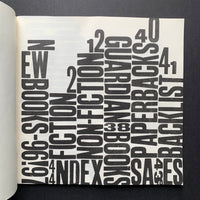 NEW BOOKS
FICTION
2
NON-FICTION
12
GUARDIAN BOOKS
38
PAPERBACKS
40
BACKLIST
41
INDEX
SALES